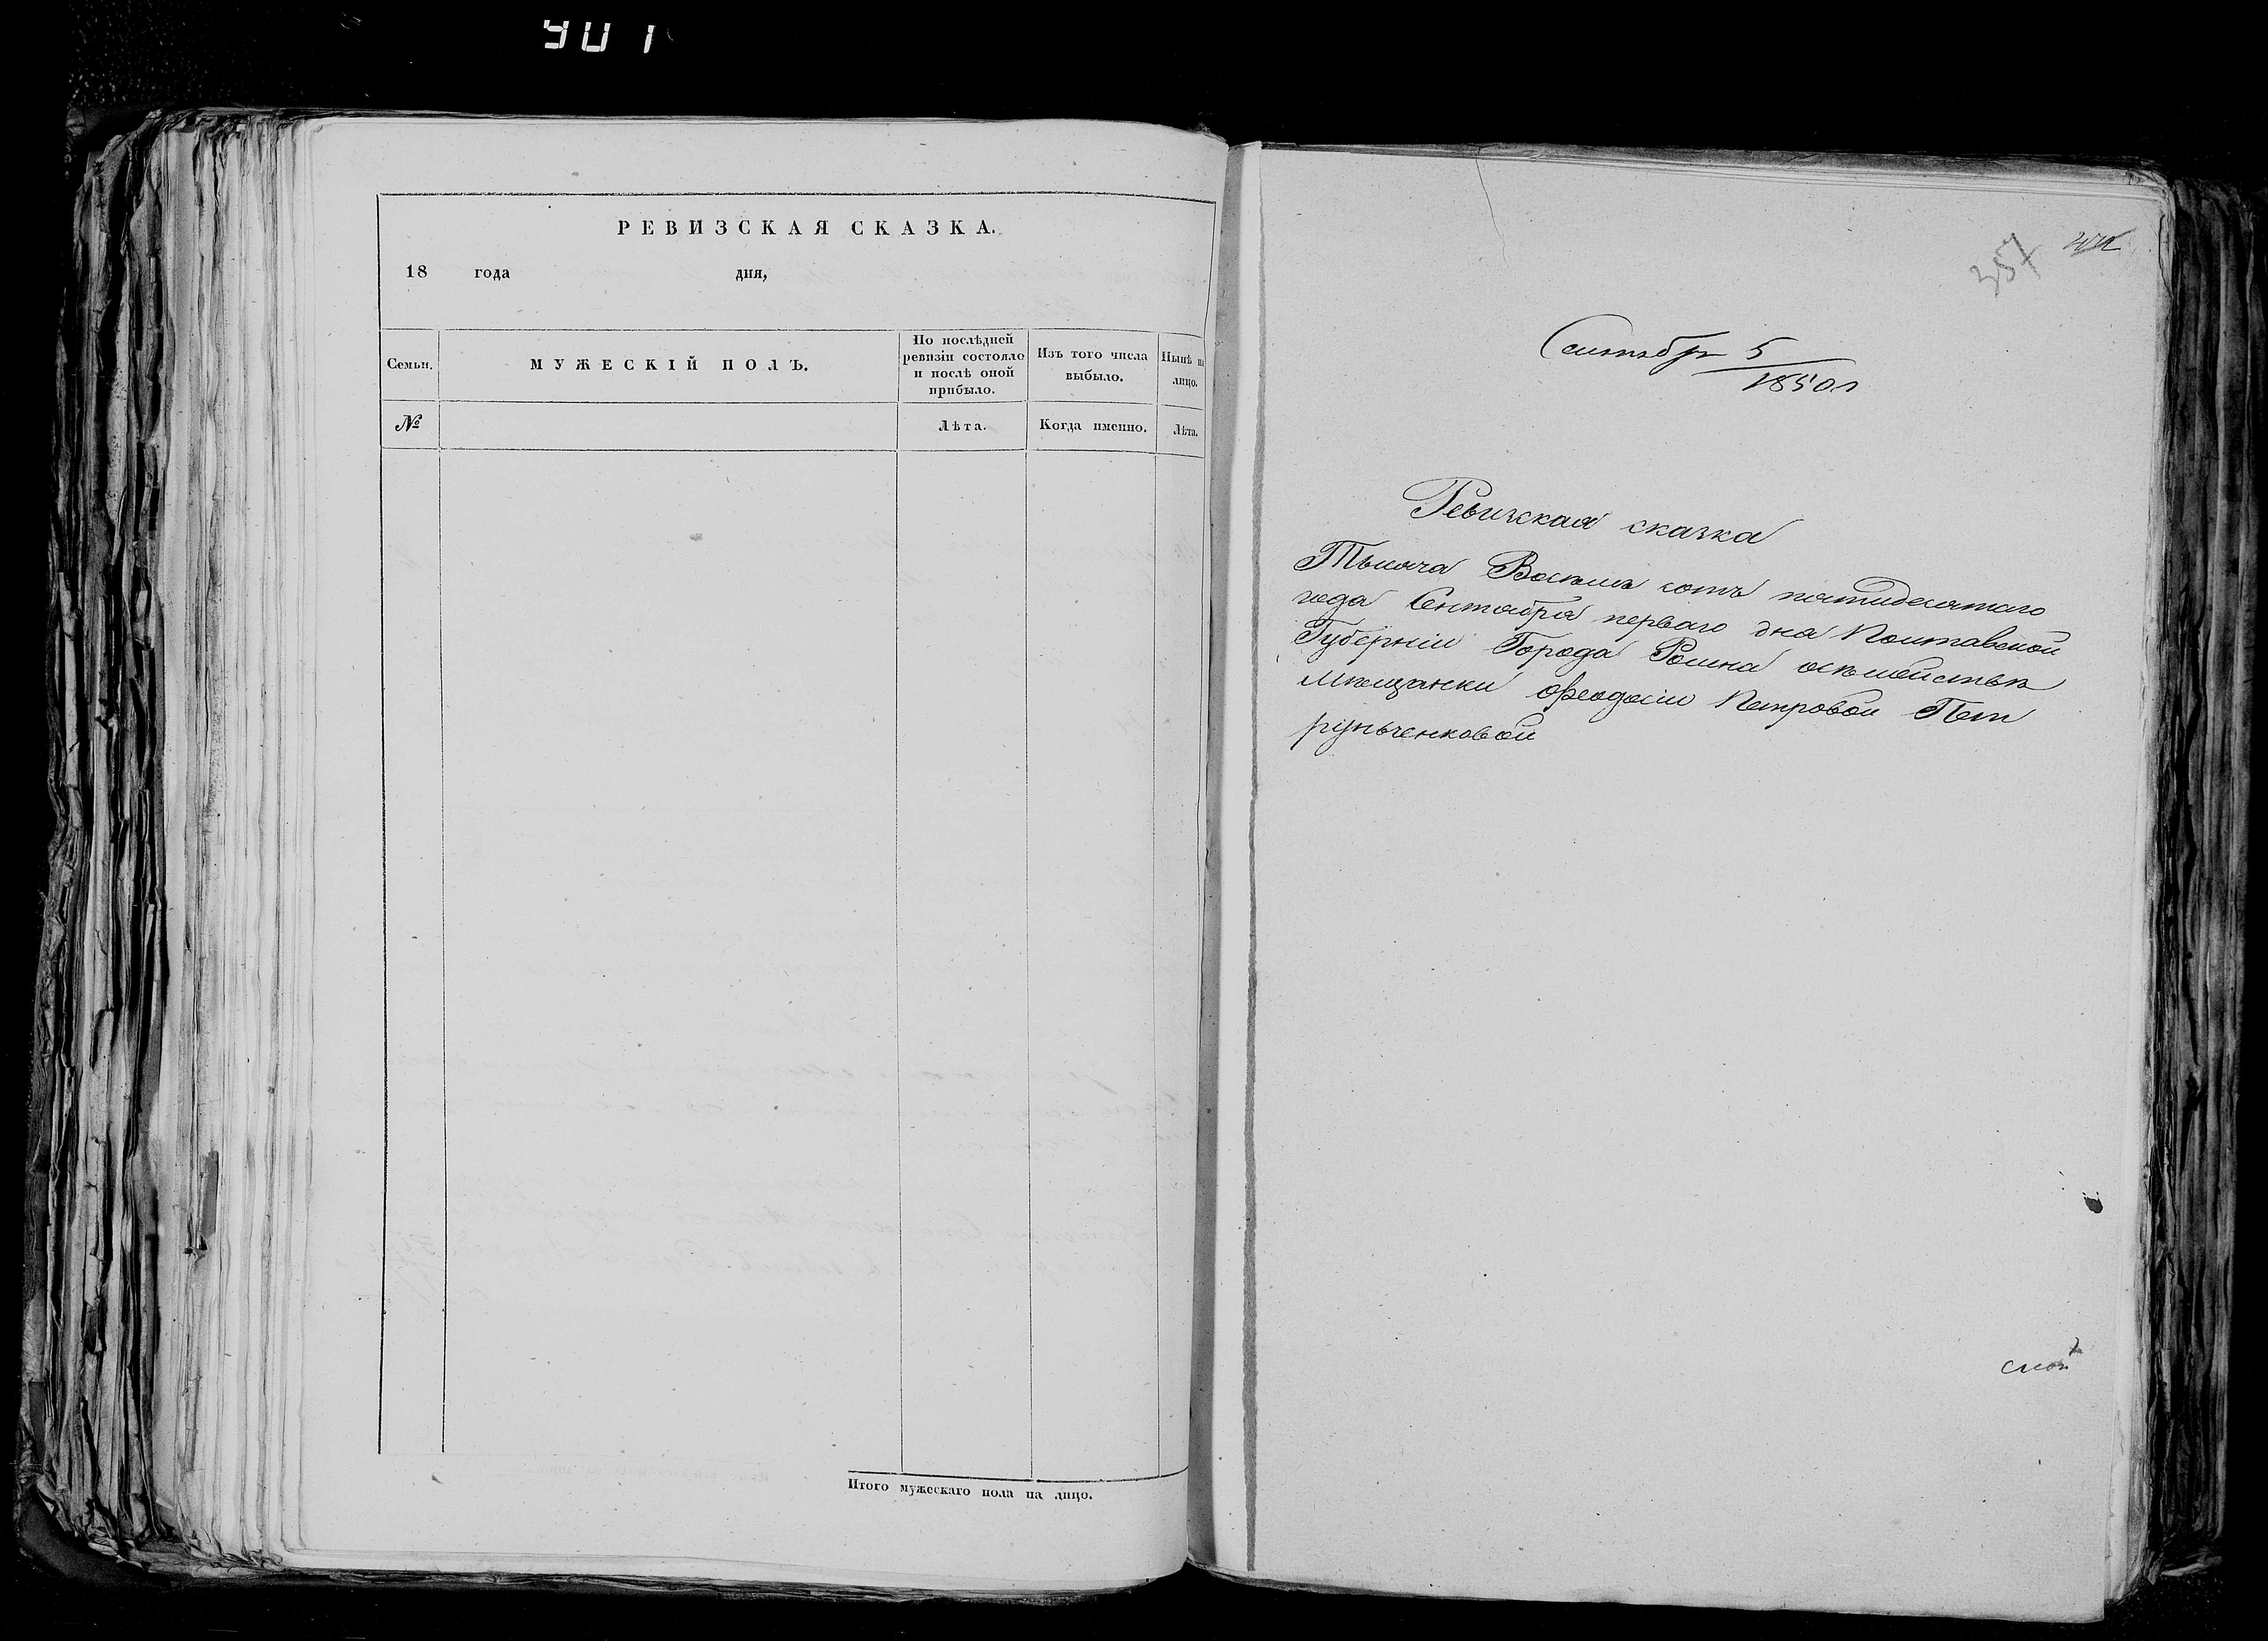 901
РЕВИЗСКАЯ СКАЗКА.
18 года дня,
Семьи. МУЖЕСКІЙ ПОЛЪ. По послѣдней ревизіи состояло и послѣ оной прибыло. Изъ того числа выбыло. Нынѣ на лицо.
№ Лѣта. Когда именно. Лѣта.
Итого мужескаго пола на лицо.
357
Сентября 5
1850 г
Ревизская сказка
Тысяча Восемь сотъ пятидесятаго
года Сентября перваго дня Полтавской
Губерніи Города Ромна осемействѣ
Мѣщанки Феодосіи Петровой Пет
руньченковой